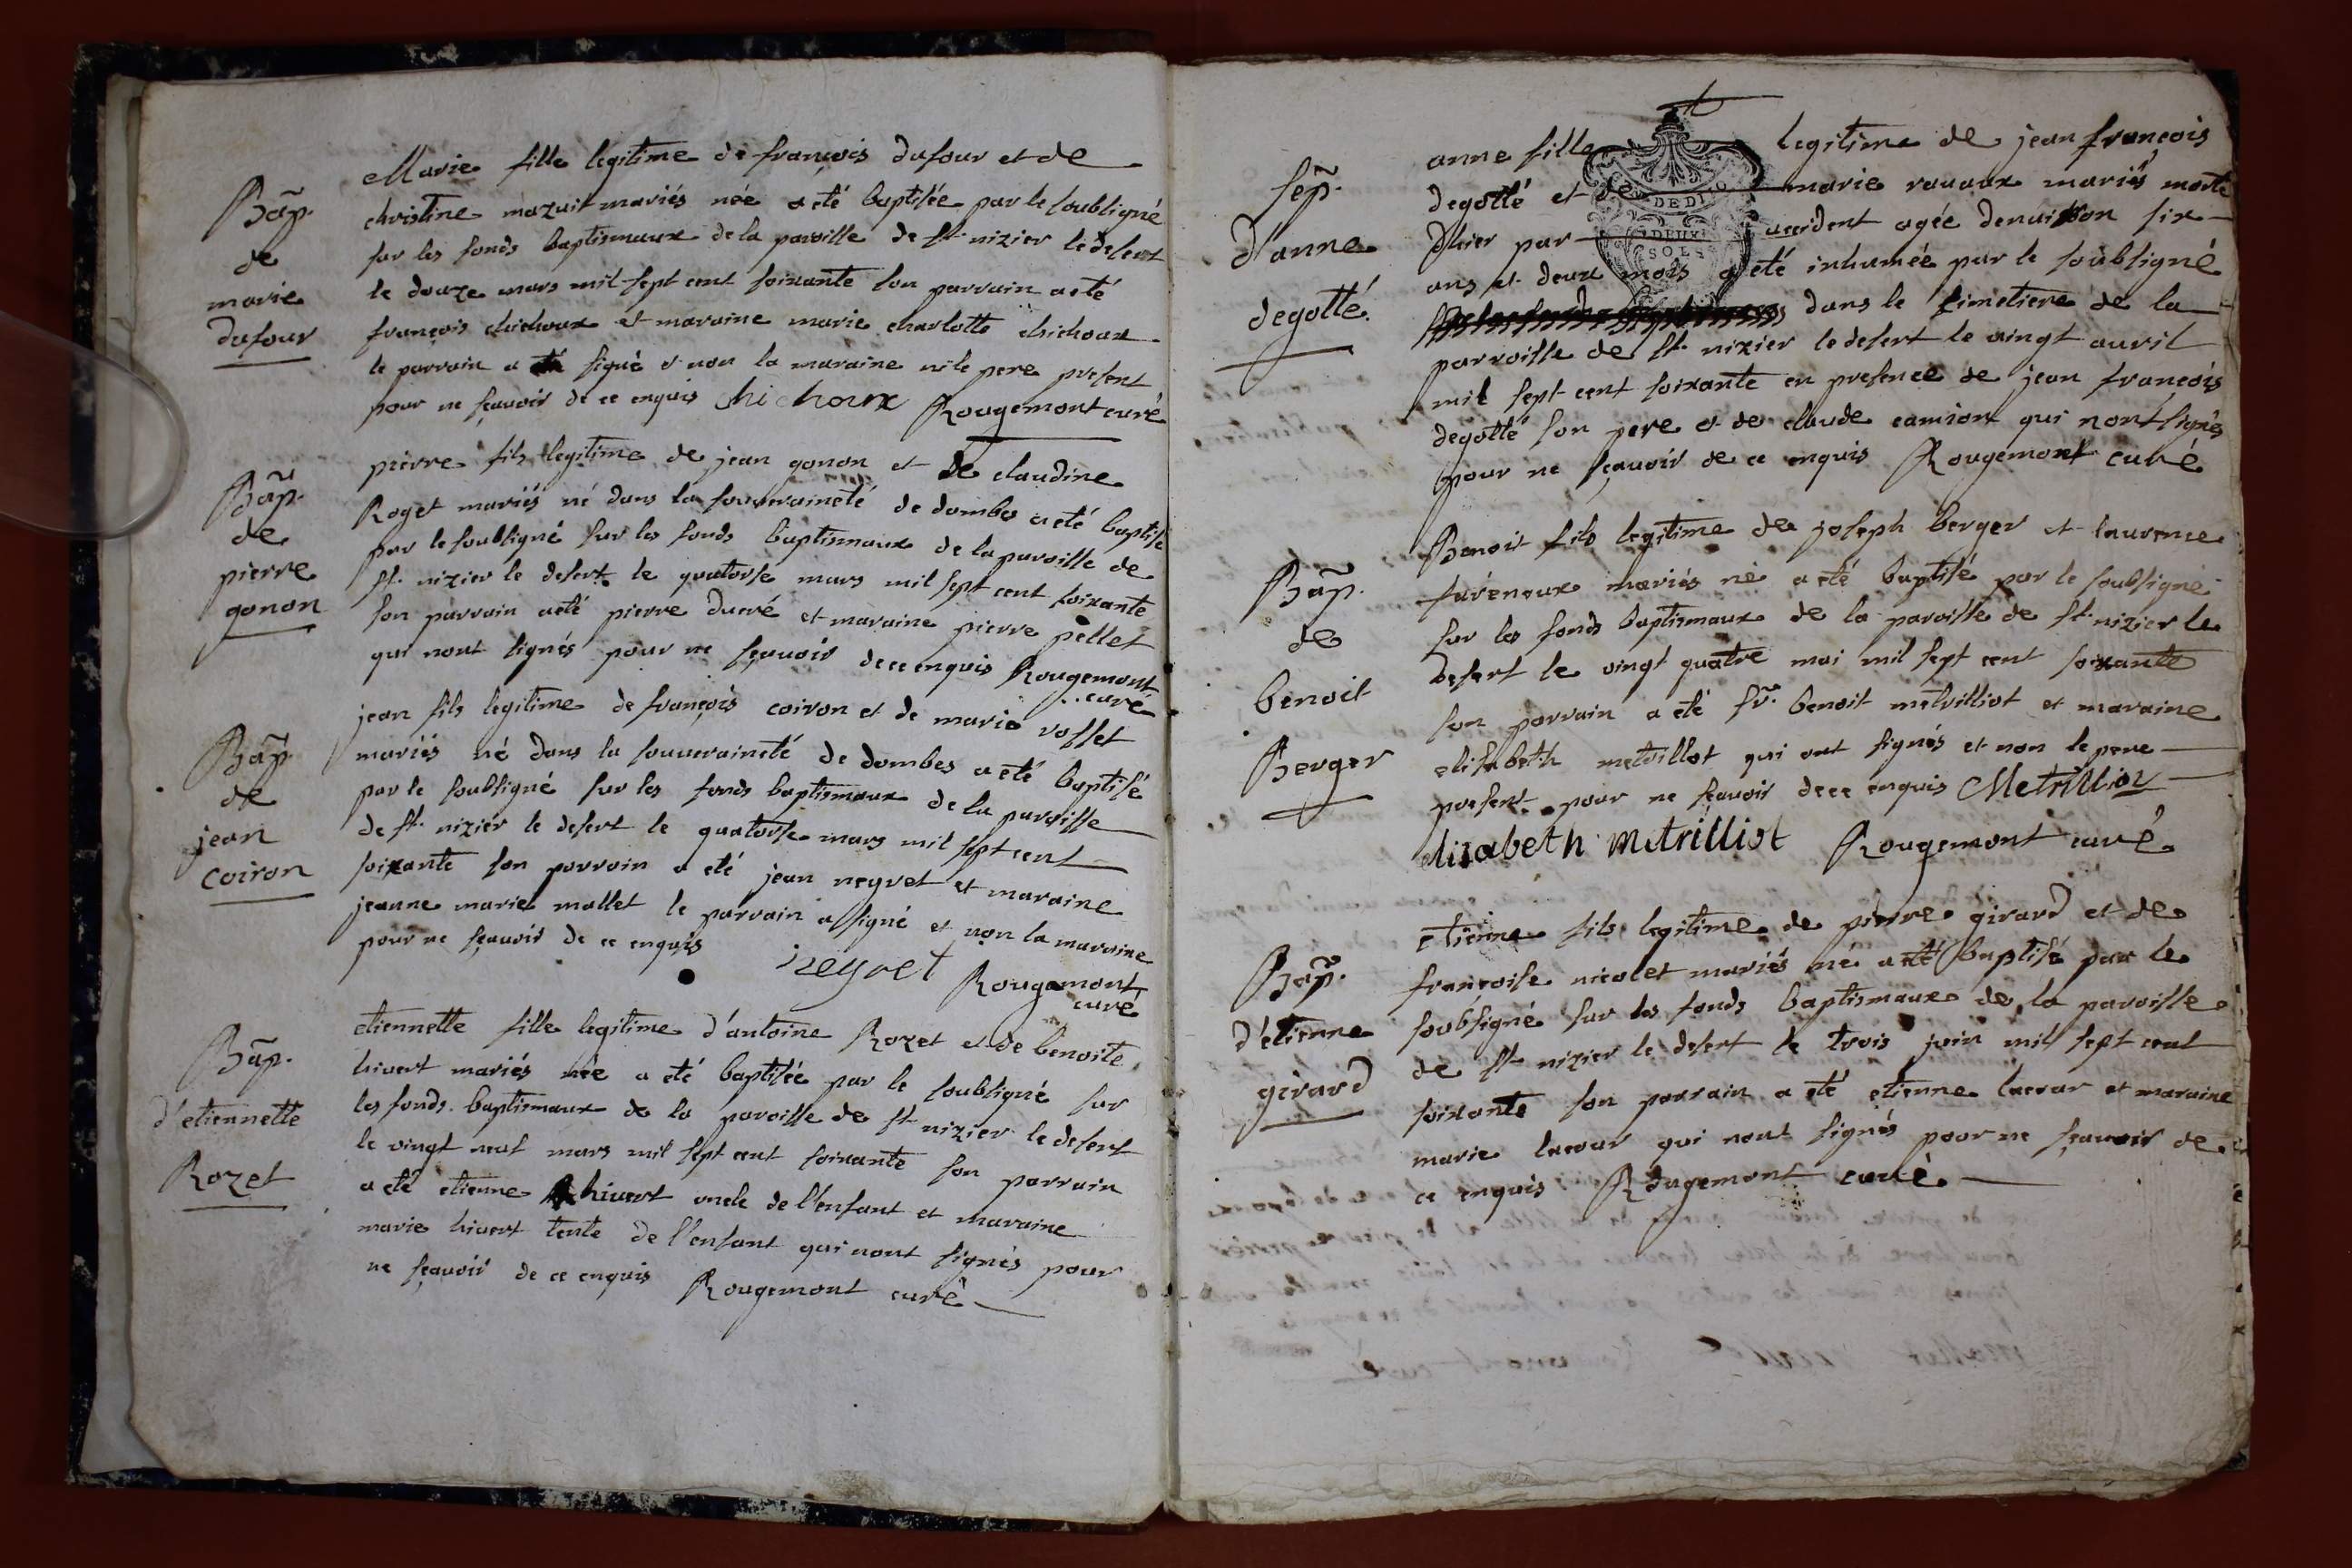 Bap̃.
de
marie
dufour
Marie fille legitime de françois dufour et de
christine mazuit mariés née a été baptisée par le soubsigné
sur les fonds baptismaux de la paroisse de st. nizier le desert
le douze mars mil sept cent soixante son parrain a été
françois chichoux et maraine marie charlotte chichoux
le parrain a signé et non la maraine ni le pere present
pour ne sçavoir de ce enquis chichoux Rougemont curé
Bap̃.
de
pierre
gonon
pierre fils legitime de jean gonon et de claudine
Roget mariés né dans la souveraineté de dombes a eté baptisé
par le soubsigné sur les fonds baptismaux de la paroisse de
st. nizier le desert le quatorse mars mil sept cent soixante
son parrain a eté pierre ducré et maraine pierre pellet
qui nont signés pour ne sçavoir de ce enquis Rougemont
curé
Bap̃.
de
jean
coiron
jean fils legitime de françois coiron et de marie rosset
mariés né dans la souveraineté de dombes a eté baptisé
par le soubsigné sur les fonds baptismaux de la paroisse
de st. nizier le desert le quatorse mars mil sept cent
soixante son parrain a eté jean neyret et maraine
jeanne marie mallet le parrain a signé et non la maraine
pour ne sçavoir de ce enquis neyret Rougemont
curé
Bap̃.
d'etiennette
Rozet
etiennette fille legitime d'antoine Rozet et de benoite
hivert mariés née a eté baptisée par le soubsigné sur
les fonds baptismaux de la paroisse de st. nizier le desert
le vingt neuf mars mil sept cent soixante son parrain
a eté etienne hivert oncle de l'enfant et maraine
marie hivert tente de l'enfant qui nont signés pour
ne sçavoir de ce enquis Rougemont curé
Sep̃.
d'anne
degotté.
anne fille legitime de jean françois
degotté et de marie ravaux mariés morte
dhier par accident agée denviron six
ans et deux mois a eté inhumée par le soubsigné
dans le cimetiere de la
parroisse de st. nizier le desert le vingt avril
mil sept cent soixante en presence de jean françois
degotté son pere et de claude camion qui nont signés
pour ne sçavoir de ce enquis Rougemont curé
DE DI
DEUX
SOLS
Bap̃.
de
benoit
Berger
Benoit fils legitime de joseph berger et laurence
mariés né a eté baptisé par le soubsigné
sur les fonds baptismaux de la paroisse de st. nizier le
desert le vingt quatre mai mil sept cent soixante
son parrain a eté sr. benoit metrilliot et maraine
elisabeth metrillot qui ont signés et non le pere
present pour ne sçavoir de ce enquis Metrilliot
elizabeth metrilliot Rougemont curé
Bap̃.
d'etienne
girard
etienne fils legitime de pierre girard et de
françoise nicolet mariés né a eté baptisé par le
soubsigné sur les fonds baptismaux de la paroisse
de st. nizier le desert le trois juin mil sept cent
soixante son parrain a eté etienne lacour et maraine
marie lacour qui nont signés pour ne sçavoir de
ce enquis Rougemont curé